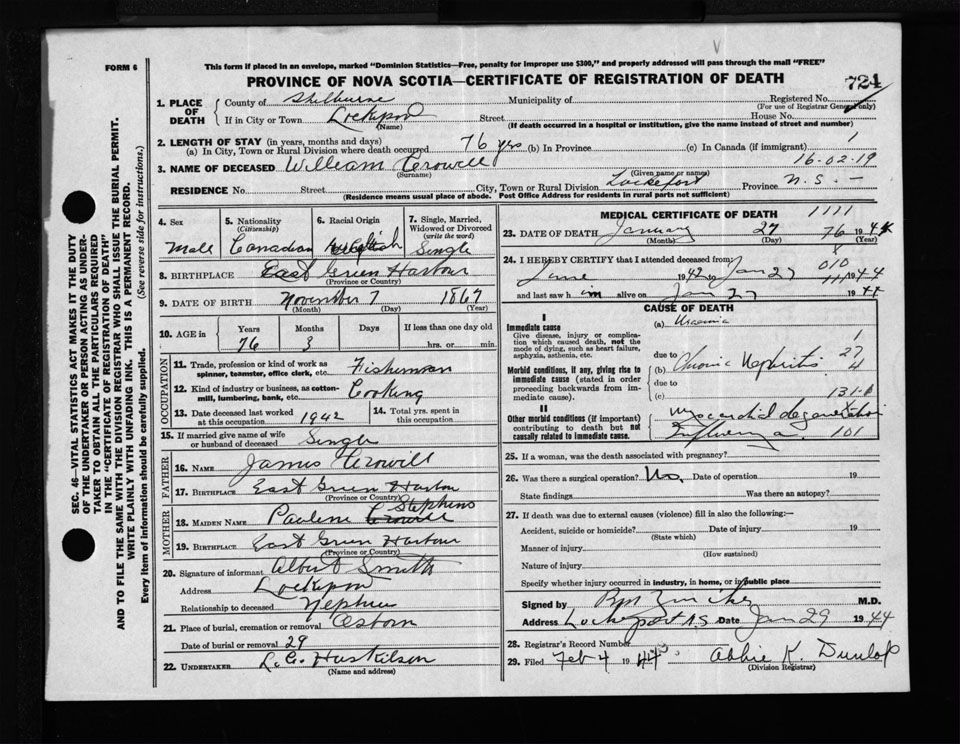 FORM 6
This form if placed in an envelope, marked "Dominion Statistics—Free, penalty for improper use $300," and properly addressed will pass through the mail "FREE"
PROVINCE OF NOVA SCOTIA—CERTIFICATE OF REGISTRATION OF DEATH
724
SEC. 46—VITAL STATISTICS ACT MAKES IT THE DUTY
OF THE UNDERTAKER OR PERSON ACTING AS UNDER-
TAKER TO OBTAIN ALL THE PARTICULARS REQUIRED
IN THE "CERTIFICATE OF REGISTRATION OF DEATH"
AND TO FILE THE SAME WITH THE DIVISION REGISTRAR WHO SHALL ISSUE THE BURIAL PERMIT.
WRITE PLAINLY WITH UNFADING INK. THIS IS A PERMANENT RECORD.
Every item of information should be carefully supplied. (See reverse side for instructions.)
1. PLACE OF DEATH
County of Shelburne Municipality of Registered No.
(For use of Registrar General only)
If in City or Town Lockeport Street House No.
(Name) (If death occurred in a hospital or institution, give the name instead of street and number)
2. LENGTH OF STAY (in years, months and days)
(a) In City, Town or Rural Division where death occurred 76 yrs (b) In Province (c) In Canada (if immigrant) 1
16-02-19
3. NAME OF DECEASED William Crowell
(Surname) (Given name or names)
RESIDENCE No. Street City, Town or Rural Division Lockeport Province N.S. —
(Residence means usual place of abode. Post Office Address for residents in rural parts not sufficient)
4. Sex Male
5. Nationality (Citizenship) Canadian
6. Racial Origin English
7. Single, Married, Widowed or Divorced (write the word) Single
8. BIRTHPLACE East Green Harbour
(Province or Country)
9. DATE OF BIRTH November 7 1867
(Month) (Day) (Year)
10. AGE in Years Months Days If less than one day old
76 3 hrs. or min.
OCCUPATION
11. Trade, profession or kind of work as spinner, teamster, office clerk, etc. Fisherman
12. Kind of industry or business, as cotton-mill, lumbering, bank, etc. Cooking
13. Date deceased last worked at this occupation 1942
14. Total yrs. spent in this occupation
15. If married give name of wife or husband of deceased Single
FATHER
16. NAME James Crowell
17. BIRTHPLACE East Green Harbour
(Province or Country)
MOTHER
18. MAIDEN NAME Paulene Crowell Stephens
19. BIRTHPLACE East Green Harbour
(Province or Country)
20. Signature of informant Albert Smith
Address Lockeport
Relationship to deceased Nephew
21. Place of burial, cremation or removal Osborn
Date of burial or removal 29
22. UNDERTAKER L. C. Huskilson
(Name and address)
MEDICAL CERTIFICATE OF DEATH
1111
23. DATE OF DEATH January 27 1944
76
(Month) (Day) (Year)
8
24. I HEREBY CERTIFY that I attended deceased from
010
June 1942 to Jan 27 1944
and last saw him alive on Jan 27 1944
CAUSE OF DEATH
I
Immediate cause
Give disease, injury or complication which caused death, not the mode of dying, such as heart failure, asphyxia, asthenia, etc.
(a) Uraemia
1
due to
27
(b) Chronic Nephritis
4
Morbid conditions, if any, giving rise to immediate cause (stated in order proceeding backwards from immediate cause).
due to
(c)
131-b
II
Other morbid conditions (if important) contributing to death but not causally related to immediate cause.
Myocardial degeneration
Influenza 101
25. If a woman, was the death associated with pregnancy?
26. Was there a surgical operation? No. Date of operation 19
State findings Was there an autopsy?
27. If death was due to external causes (violence) fill in also the following:—
Accident, suicide or homicide? Date of injury 19
(State which)
Manner of injury
(How sustained)
Nature of injury
Specify whether injury occurred in industry, in home, or in public place
Signed by M.D.
Address Lockeport N.S. Date Jan 29 1944
28. Registrar's Record Number
29. Filed Feb 4 1944 Abbie K. Dunlop
(Division Registrar)